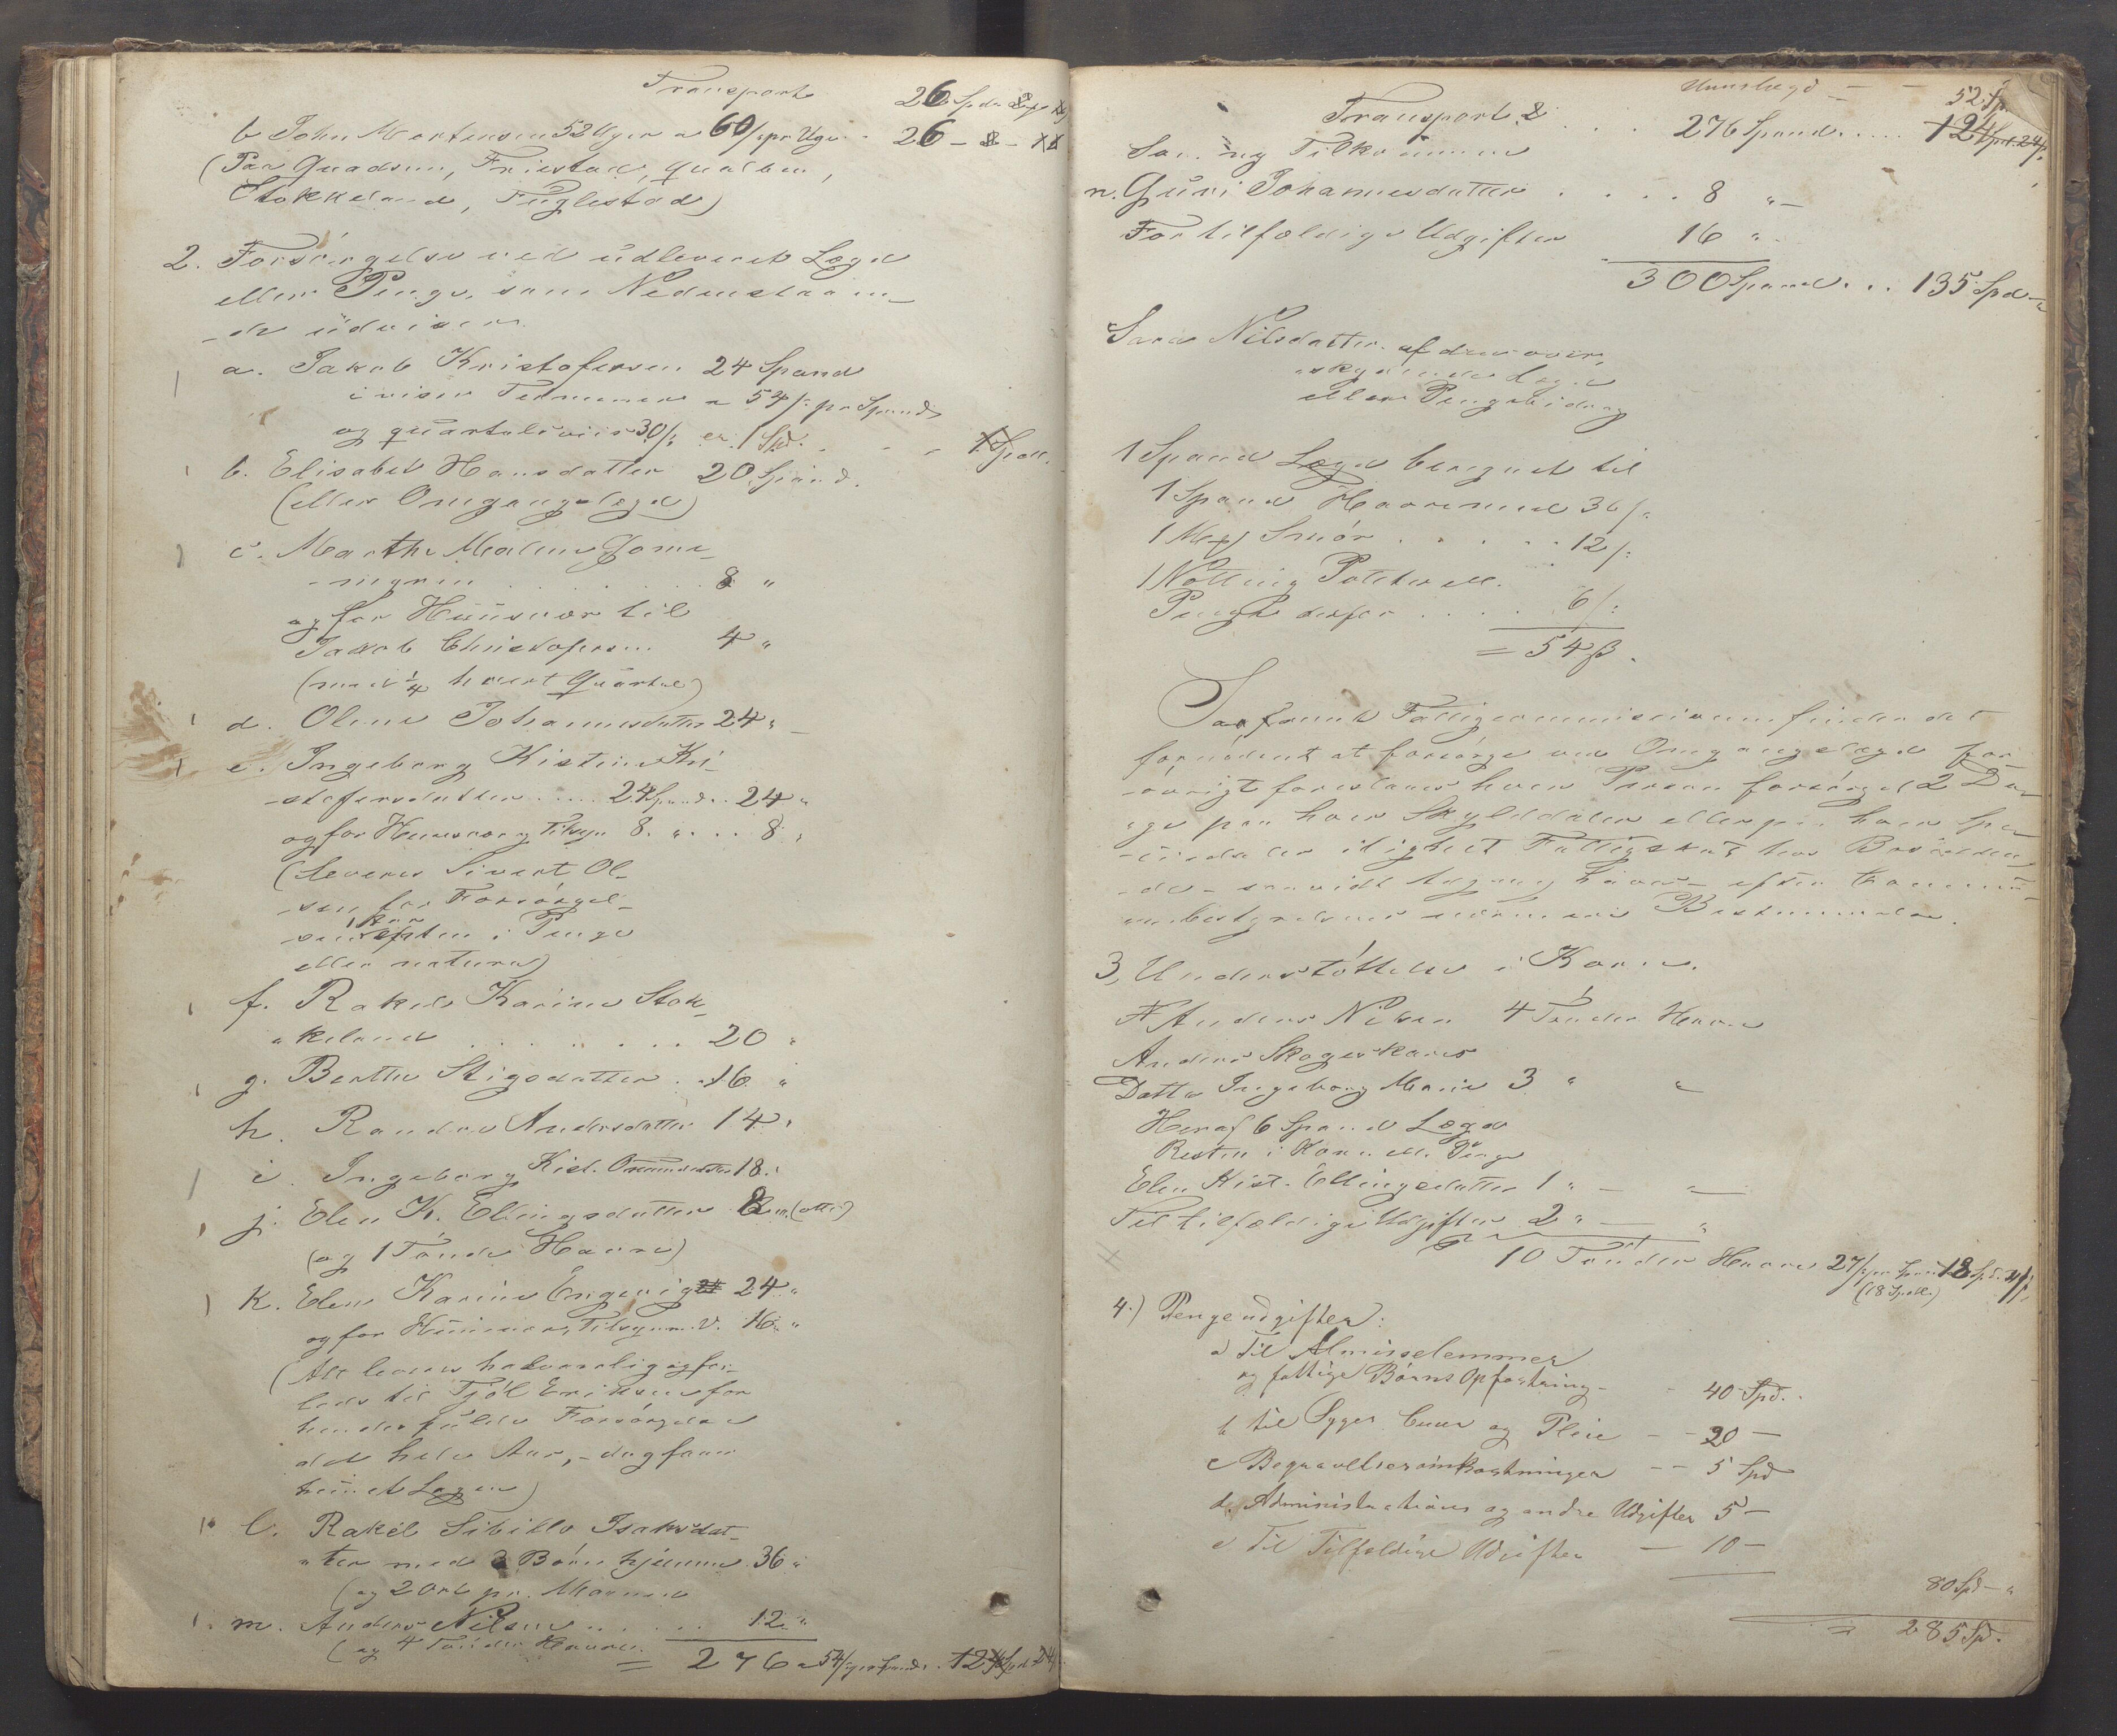 Transport 26 Spd
b John Mortensen 52 Uger a 60/s pr Uge 26 -
(Paa Quadsem, Friestad, Qualben,
Stokkeland, Fuglestad)
2. Forsörgelse ved udleveret Lægd
eller Penge, som Nedenstaaen-
-de udviser
a. Jakob Kristofersen 24 Spand
i visse Terminer a 54 /s pr Spand
og quartaliviis 30/s er 1 Spd. 1 Spdl.
b. Elisabet Hansdatter 20 Spand.
(eller Omgangslægd)
c. Marthe Malene
8 "
og for Huusvær til
Jakob Christofersen 4 "
(med 1/4 hvert Quartal)
d. Olene Johannesdatter 24 "
e. Ingeborg Kistine Kri-
-stofersdatter ..... 24 Spand .. 24 "
og for Huusvær og Tilsyn 8. " ... 8 "
(leveres Sivert Ol-
-sen for Forsörgel-
i Penge
eller natura)
f. Rakel Karine Stok-
"keland . . . . . . . 20 "
g. Berthe Stigsdatter . . 16 "
h. Randi Andersdatter 14 "
i. Ingeborg Kist. Omundsdatter 18 "
j. Elen K. Ellingsdatter 8 " (otte)
(og 1 Tönde Havre)
k. Elen Karine 24 "
og for Huusvær, Tilsyn m. V. 16 "
(Alt leveres halvaarlig og for-
lods til Tjöl Eriksen for
hendes fulde Forsörgelse
det hele Aar, - dog faaer
hun et Lagen)
l. Rakel Sibille Isaksdat-
"ter med 3 Börn hjemme 36 "
(og 2 Ort pr. Maaned
m. Anders Nilsen . . . . . 12 "
(og 4 Tönder Havre.
= 276 a 54/s pr Spand . 124 Spd 24
52 Sp.
Transport . . . 276 Spand . . . . . 124 Spd. 24
Som ny Tilkommen
n. Guri Johannesdatter . . . . 8 " -
For tilfældige Udgifter 16 " -
300 Spand . . . 135 Spd -
Sara Nilsdatter af den over-
"skydende Lægd
eller Pengebidrag
1 Spand Lægd beregnet til
1 Spand Havremel 36 /s
1 Smör . . . . . 12 /s
1 Potetes ell.
Penge derfor . . . . 6 /s
= 54 ß.
Saafremt Fattigcommissionen finder det
fornödent at forsörge ved Omgangslægd for-
-övrigt foreslaaes hver Person forsörget 2 Da-
"ge paa hver Skylddaler eller paa hver Spe-
Fattigskat hos
-de - saavidt Adgang haves - efter Commu-
Bestemmelse.
3, Understöttelse i Korn.
Anders Nilsen 4 Tönder Havre
Anders Skogeskaars
Datter Ingeborg Marie 3 " "
Heraf 6 Spand Lægd
Resten i Korn ell. Penge
Elen Kist. Ellingsdatter 1 " - "
Til tilfældige Udgifter 2 " - "
10 Tönder Havre 27/s pr Spand 18 Spd.
(18 Spdl.)
4.) Pengeudgifter:
a Til Almisselemmer
og fattige Börns Opfostring - - 40 Spd. -
b til Syges Cuur og Pleie - - 20 -
c Begravelsesomkostninger - - 5 Spd
d. Administrations og andre Udgifter 5 -
e Til Tilfældige Udgifter - 10 -
80 Spd - "
= 285 Spd.